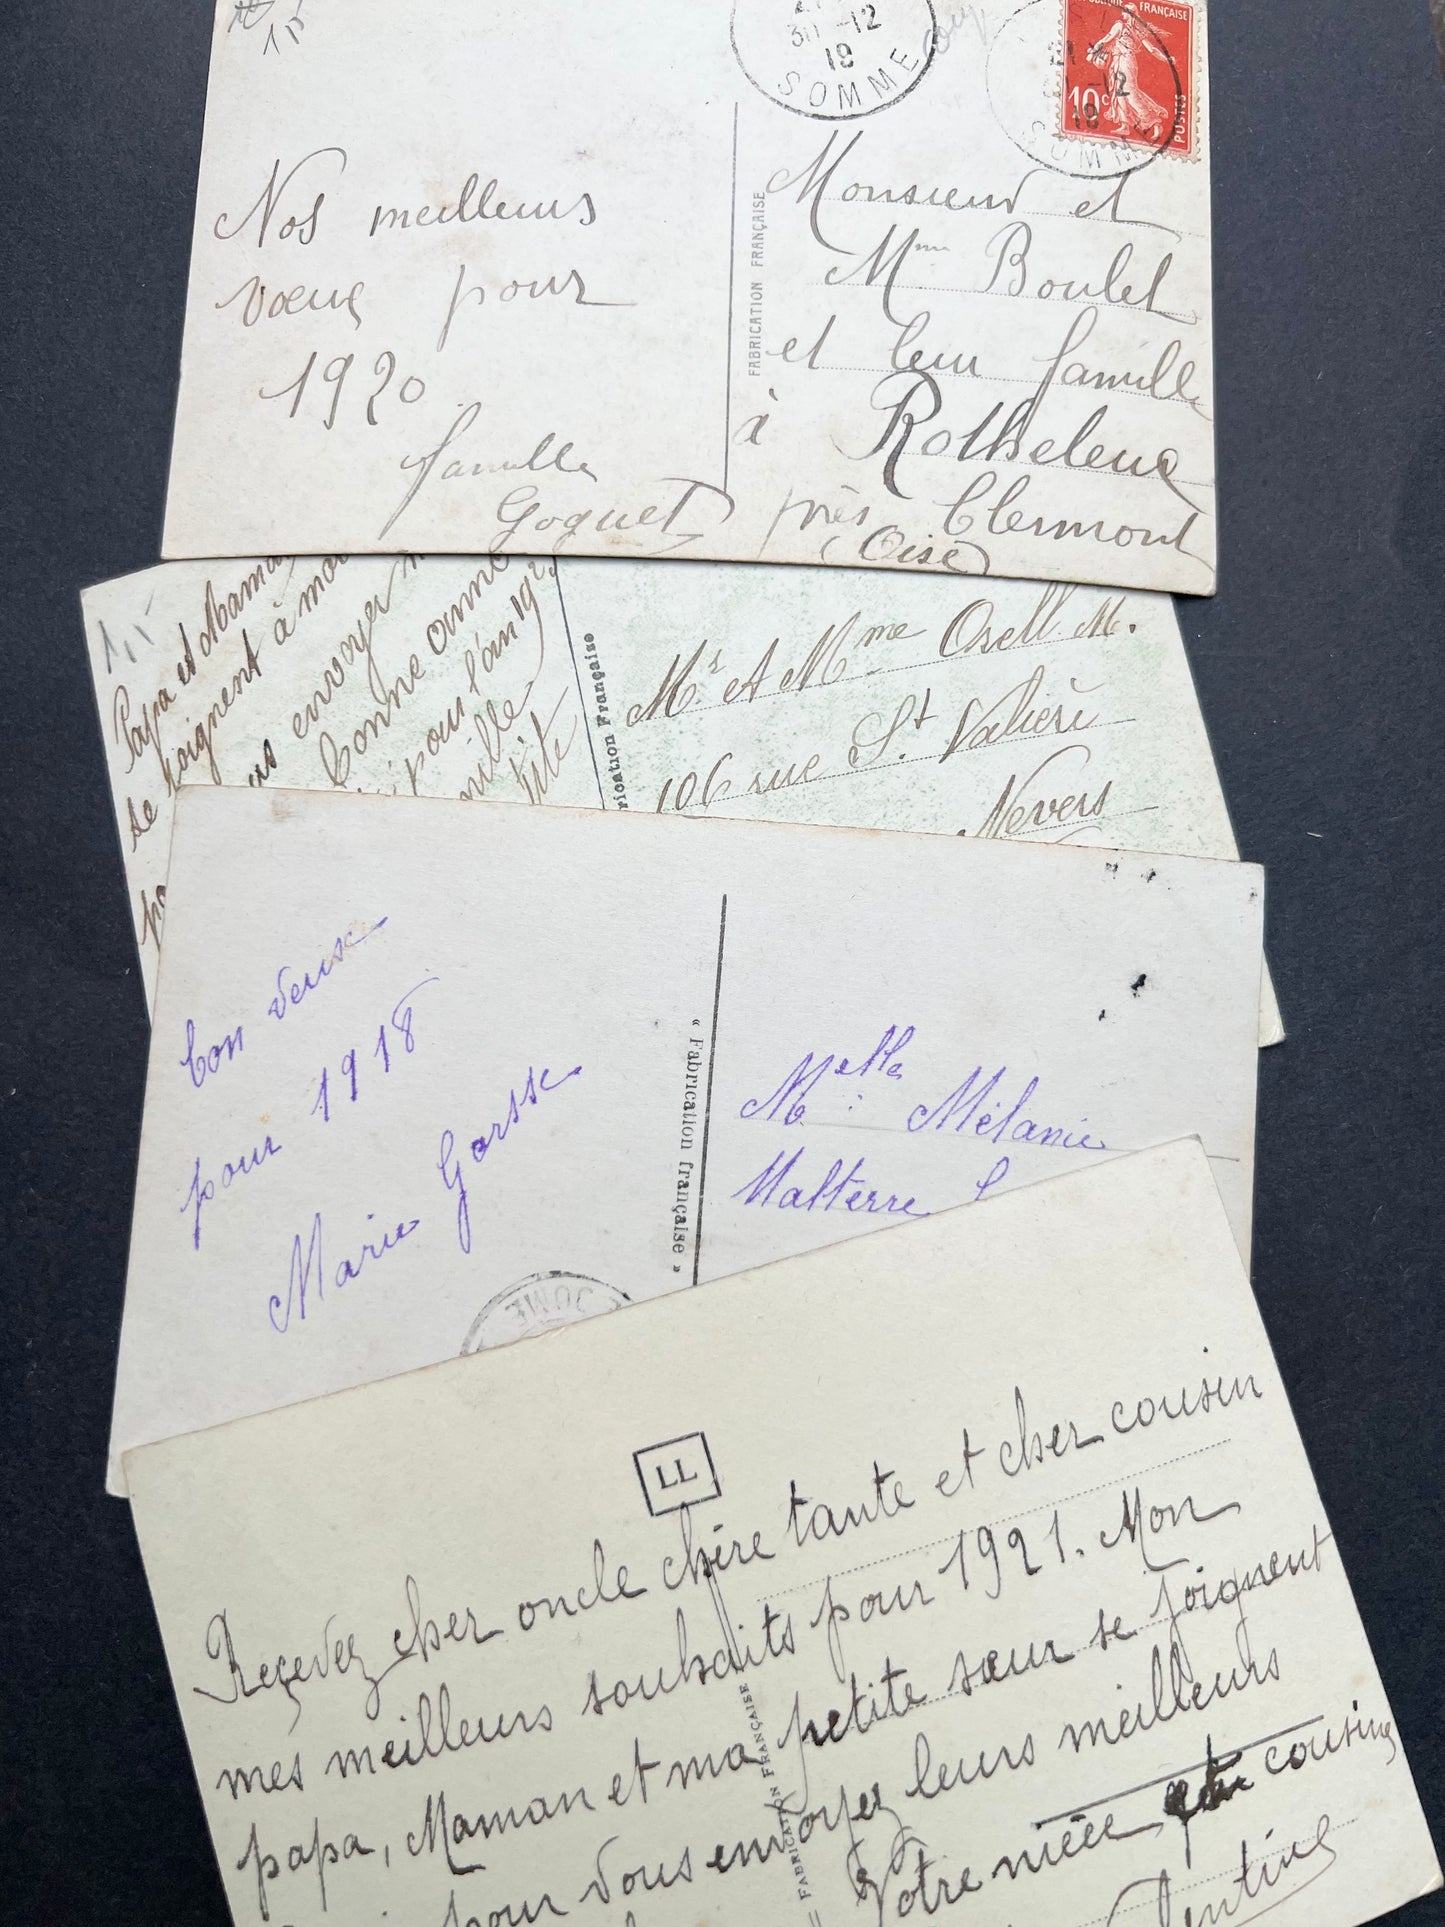 15
30 -12
19
SOMME
RÉPUBLIQUE FRANÇAISE
10c
POSTES
-12
19
SOMME
Nos meilleurs
vœux pour
1920
famille
Goguet
FABRICATION FRANÇAISE
Monsieur et
Mme Boulet
et leur famille
à Rotheleux
près Clermont
(Oise)
Papa et Maman
se joignent à moi
envoyer
bonne année
pour l'an 192
Fabrication Française
Mr et Mme Osell M.
106 rue St Valière
Nevers
bon veux
pour 1918
Marie Gorsse
« Fabrication française »
Melle Mélanie
Malterre
DOME
LL
Reçevez cher oncle chère tante et cher cousin
mes meilleurs souhaits pour 1921. Mon
papa, Maman et ma petite sœur se joignent
pour vous envoyez leurs meilleurs
Votre nièce et cousine
FABRICATION FRANÇAISE